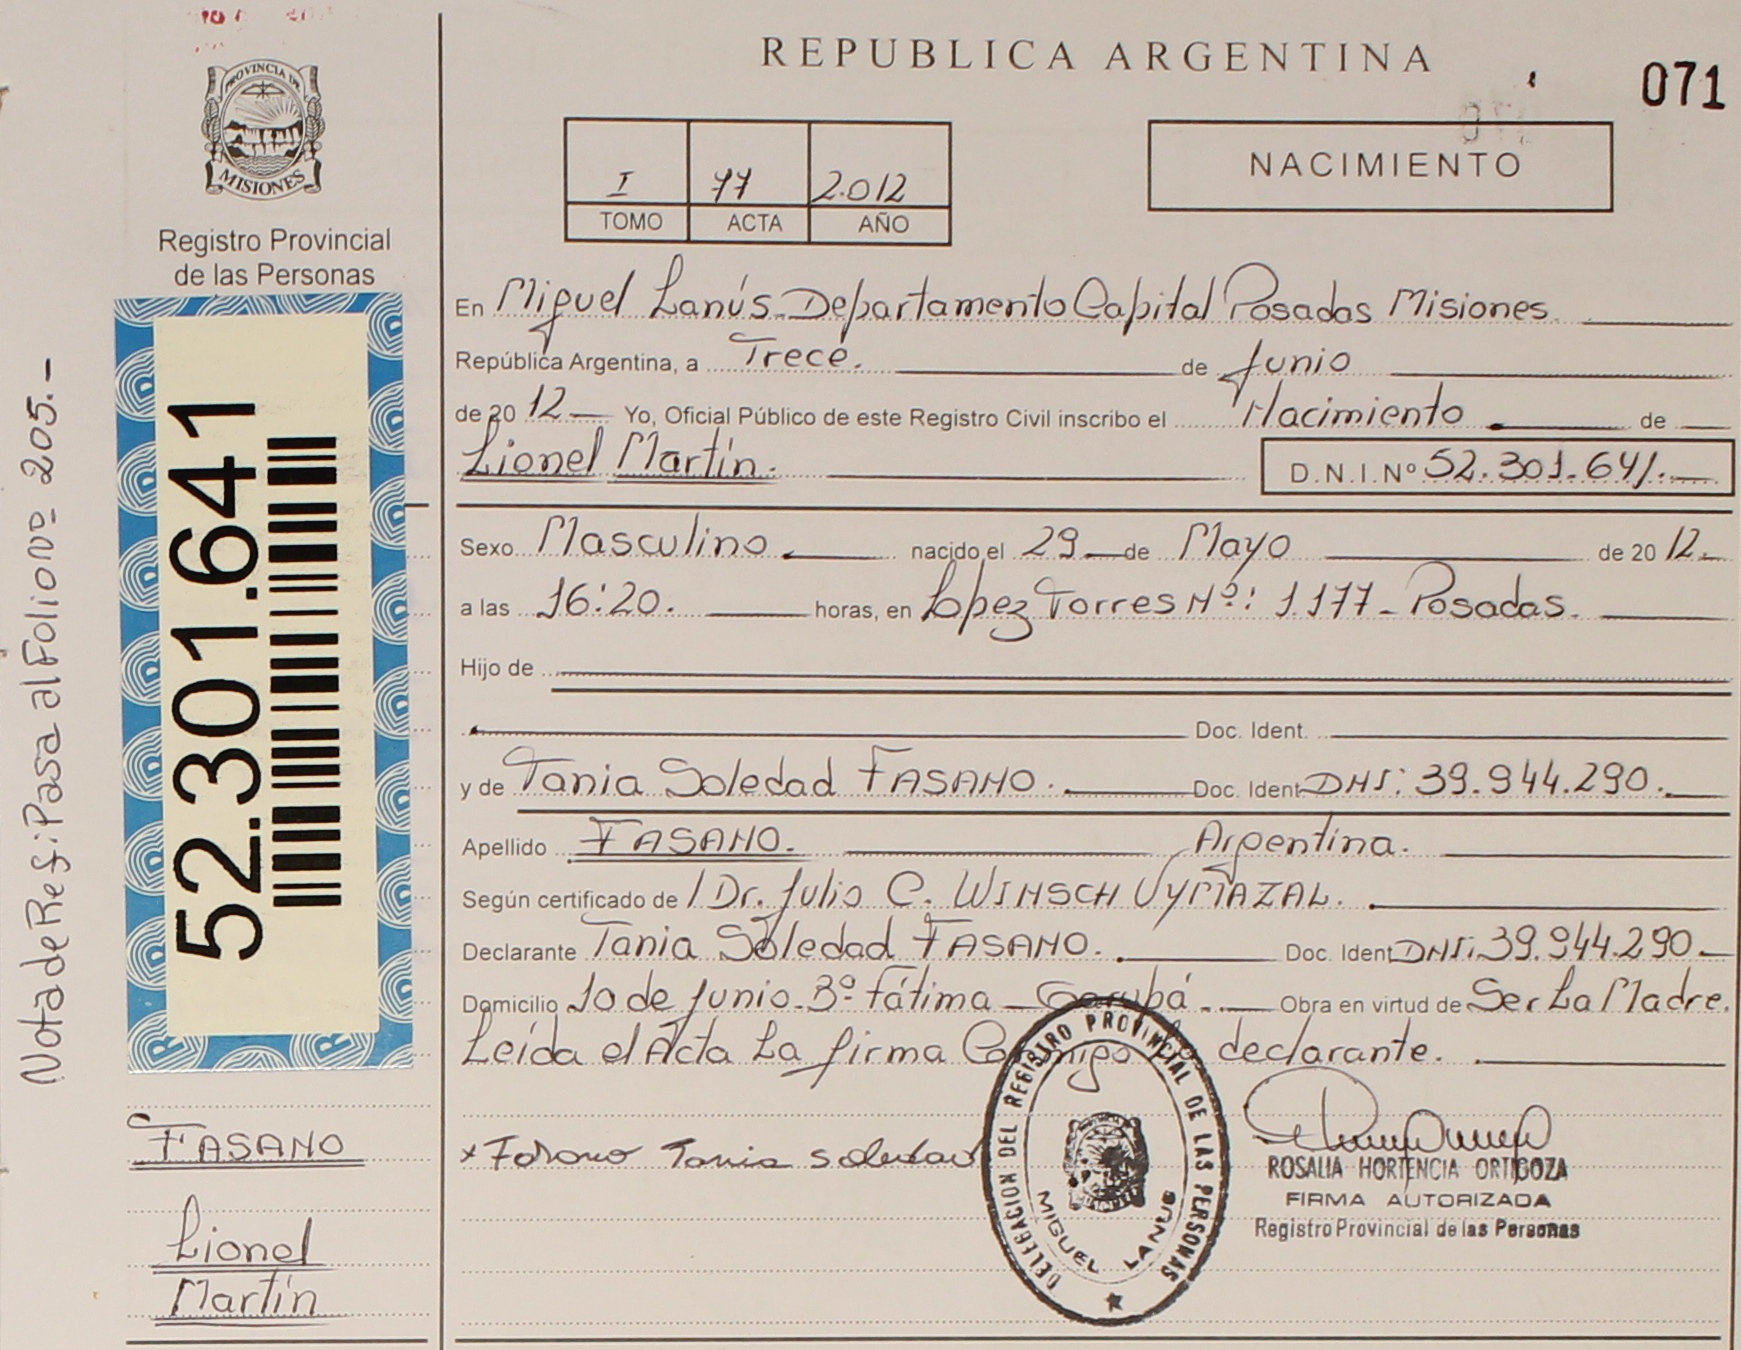 REPUBLICA ARGENTINA
071
PROVINCIA DE
MISIONES
Registro Provincial
de las Personas
I 77 2.012
TOMO ACTA AÑO
NACIMIENTO
En Miguel Lanús. Departamento Capital Posadas Misiones.
República Argentina, a Trece. de Junio
de 20 12 Yo, Oficial Público de este Registro Civil inscribo el Nacimiento de
Lionel Martín. D.N.I. Nº 52.301.641.
Sexo Masculino. nacido el 29 de Mayo de 20 12.
a las 16:20. horas, en López Torres Nº: 1.177 - Posadas.
Hijo de
Doc. Ident.
y de Tania Soledad FASANO. Doc. Ident. DNI: 39.944.290.
Apellido FASANO. Argentina.
Según certificado de / Dr. Julio C. WINSCH VYMAZAL.
Declarante Tania Soledad FASANO. Doc. Ident. DNI: 39.944.290.
Domicilio 10 de Junio - Bº Fátima - Garupá. Obra en virtud de Ser La Madre.
Leída el Acta La firma Conmigo La declarante.
x Fasano Tania Soledad
DELEGACION DEL REGISTRO PROVINCIAL DE LAS PERSONAS
MIGUEL LANUS
ROSALIA HORTENCIA ORTIGOZA
FIRMA AUTORIZADA
Registro Provincial de las Personas
52.301.641
FASANO
Lionel
Martín
Nota de Ref: Pasa al Folio Nº 205.-